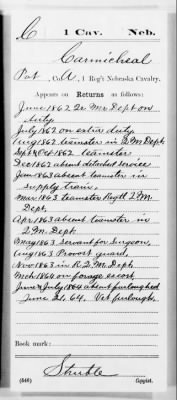 C 1 Cav. Neb.
Carmicheal
Pat, Co. A, 1 Reg't Nebraska Cavalry.
Appears on Returns as follows:
June 1862 Qr. Mr. Dept on
duty
July 1862 on extra duty
Aug 1862 teamster in Q.M. Dept.
Sept & Oct. 1862 teamster
Dec 1862 absent detached service
Jan 1863 absent teamster in
supply train.
Mar 1863 teamster Regtl Q.M.
Dept.
Apr 1863 absent teamster in
Q.M. Dept.
May 1863 servant for surgeon
Aug 1863 Provost guard,
Nov 1863 in R.Q.M. Dept.
Mch 1864 on forage escort
June & July 1864 absent furloughed
June 21, 64. Vet furlough.
Book mark:
Struble
(546) Copyist.